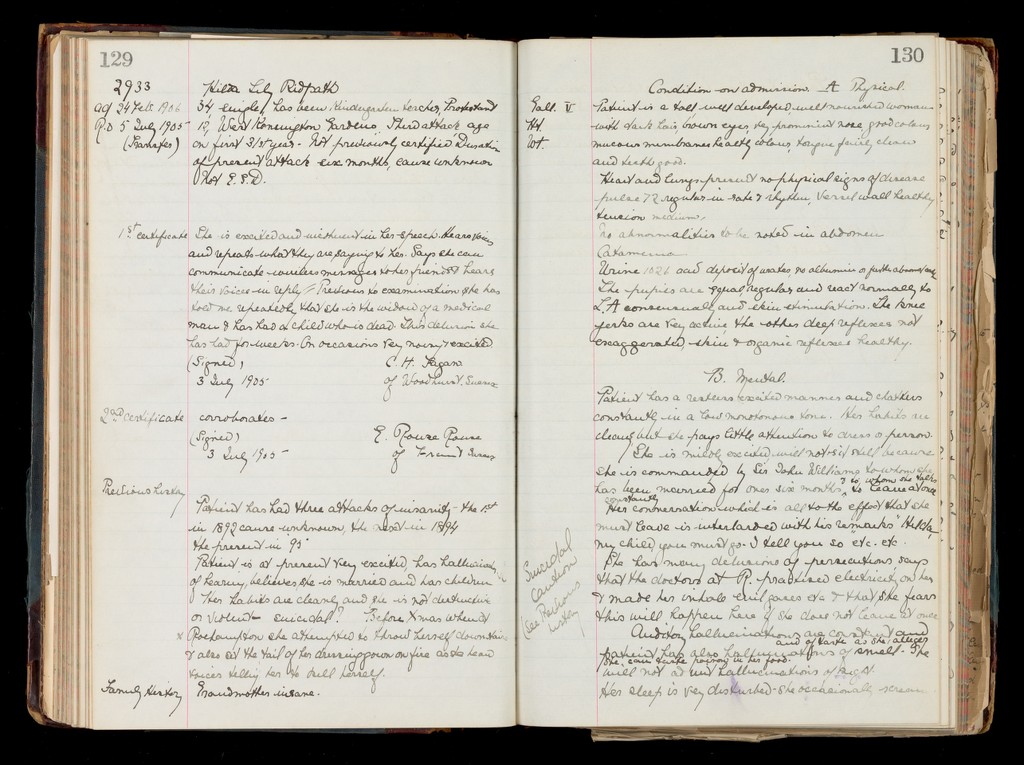 129
2933 Hilda Lily Redpath
ad 24 Feb. 1906 34, single, has been Kindergarten teacher, Protestant
R.O 5 July 1905 12, West Kensington Gardens, Third attack age
(Transfer) on first 3/st year - Not previously certified Duration
of present attack six months, cause unknown
Not E.S.D.
1st certificate She is excited and in her speech. Hears voices
and repeats what they are saying to her. Says she can
communicate wireless messages to her friends & hears
their voices in reply - Previous to examination she has
told me repeatedly that she is the widow of a medical
man & has had a child who is dead. This delusion she
has had for weeks. On occasions very noisy & excited
(Signed) C. H. Fagan
3 July 1905 of Woodhurst, Sussex
2nd certificate corroborates -
(Signed) E. Rouse Rouse
3 July 1905 of Sussex
Previous history
Patient has had three attacks of insanity - the 1st
in 1892 cause unknown, the next in 1894
the present in 95
Patient is at present very excited, has hallucinations
of hearing, believes she is married and has children
Her habits are cleanly and she is not destructive
or violent - suicidal? Before Xmas when at
x Roehampton she attempted to throw herself downstairs
& also set the tail of her dressing gown on fire as she heard
voices telling her to kill herself.
Family history Grandmother insane.
130
Condition on admission. A Physical.
Gall. V Patient is a tall well developed, well nourished woman
Ht. with dark hair, brown eyes, very prominent nose, good colour
Wt. mucous membranes healthy colour, tongue fairly clean
and teeth good.
Heart and lungs present no physical signs of disease
pulse 72 regular in rate & rhythm, vessel wall healthy
tension medium.
No abnormalities to be noted in abdomen
Catamenia
Urine 1026 acid deposit of urates, no albumin or
The pupils are equal, regular and react normally to
L. A consensually and skin stimulation. The knee
jerks are very active, the other deep reflexes not
exaggerated, skin & organic reflexes healthy.
B. Mental.
Patient has a restless excited manner and chatters
constantly in a low monotonous tone. Her habits are
cleanly but she pays little attention to dress or person.
She is much excited will not sit still because
she is commanded by Sir John Williams to whom she
has been married for ones six months, & to whom she talks
constantly to leave at once
Her conversation which is all to the effect that she
must leave is interlarded with his remarks "Hilda,
my child you must go - I tell you so etc. etc.
She has many delusions of persecutions says
that the doctors at R. practised electricity on her
& made her inhale evil gases etc & that she fears
this will happen here if she does not leave at once
Auditory hallucinations are constant and
and of taste as she alleges
patient has also hallucinations of smell. She
she can taste poison in her food.
will not admit hallucinations of sight.
Her sleep is very disturbed - she occasionally screams
Suicidal
Caution
See Previous
history